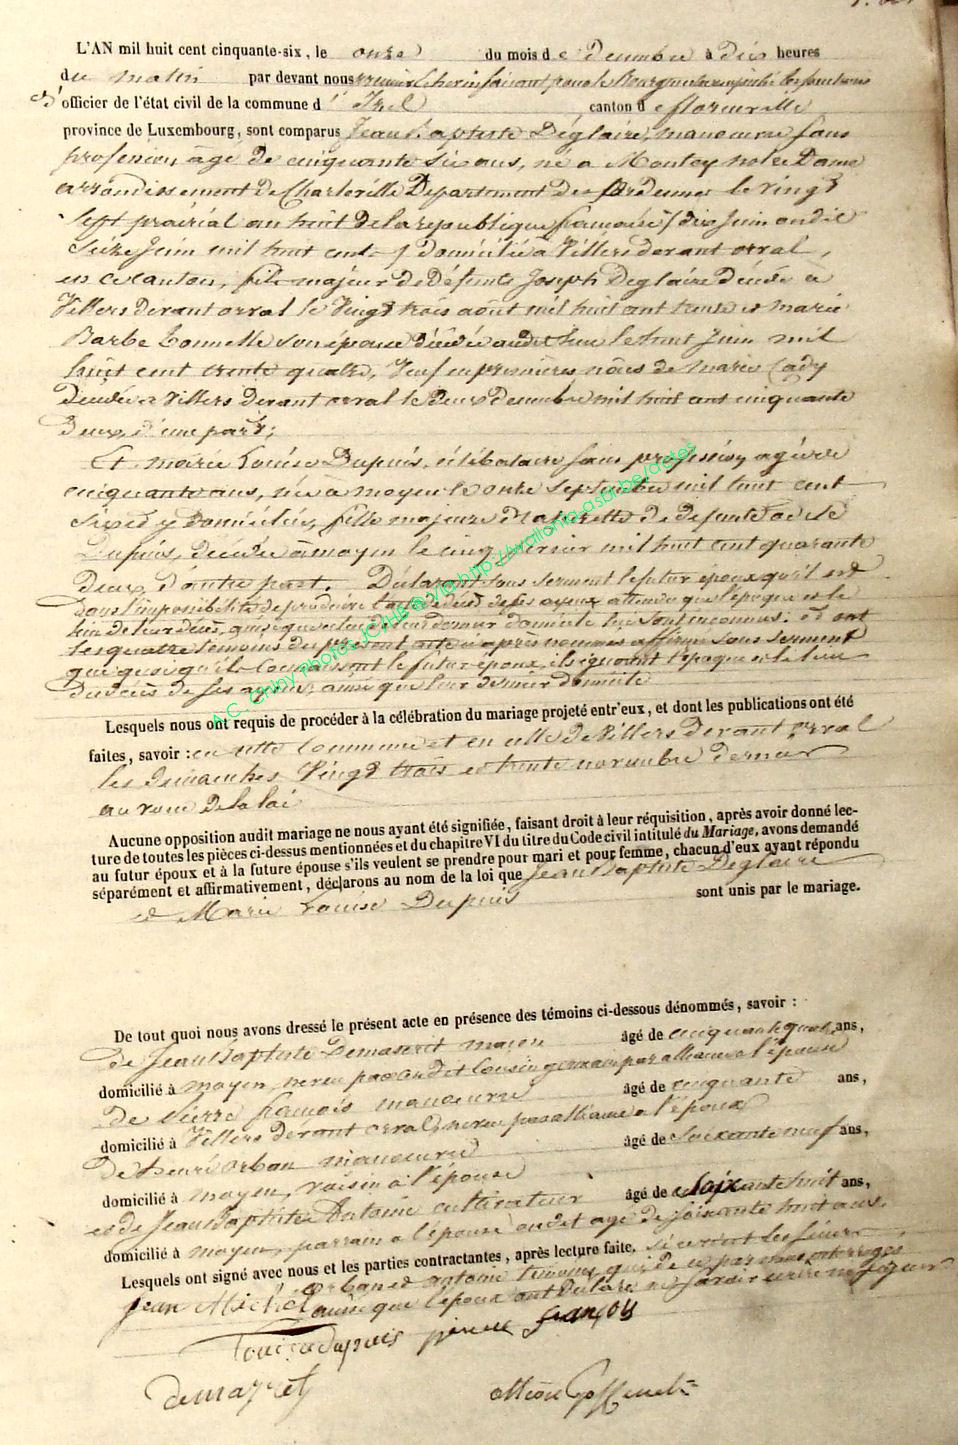 L'AN mil huit cent cinquante-six, le onze du mois de decembre à dix heures
du matin par devant nous premier Echevin faisant pour le Bourgmestre empêché les fonctions
d'officier de l'état civil de la commune d'Izel canton de florenville
province de Luxembourg, sont comparus Jean Baptiste Déglaire, manoeuvre sans
profession, âgé de cinquante six ans, né a Moutoy notre Dame
arrondissement de Charleville Département Des Ardennes le vingt
sept prairial an huit De la république française / dix Juin ou dit
Seize Juin mil huit cent / domicilié à Villers devant orval,
en ce canton, fils majeur de Défunts Joseph Deglaire décédé a
Villers devant orval le Vingt trois août mil huit cent trente et marie
Barbe Tonnelle son épouse décédée audit lieu le huit Juin mil
huit cent trente quatre, Veuf en premières nôces de Marie Cady
Décédée a Villers devant orval le Deux decembre mil huit cent cinquante
Deux, d'une part;
Et marie Louise Dupuis, célibataire sans profession, agée de
cinquante ans, née à moyen le onze septembre mil huit cent
six et y domiciliée, fille majeure De de défunte
Dupuis, décédée à moyen le cinq fevrier mil huit cent quarante
Deux, D'autre part. Déclarant sous serment le futur époux qu'il est
dans l'impossibilité de produire l'acte de décès de ses ayeux, attendu que l'époque et le
lieu de leur décès, ainsi que celui de leur dernier domicile lui sont inconnus; et ont
les quatre témoins du présent acte ci après nommés affirmé sous serment
que quoi qu'ils connaissent le futur époux, ils ignorent l'époque et le lieu
du décès de ses ayeux, ainsi que leur dernier domicile
A.C. Chiny Photos JC.HB @ via http://wallonia-asbl.be/actes
Lesquels nous ont requis de procéder à la célébration du mariage projeté entr'eux, et dont les publications ont été
faites, savoir : en cette Commune et en celle de Villers devant orval
les dimanches Vingt trois et trente novembre dernier
au voeu de la loi
Aucune opposition audit mariage ne nous ayant été signifiée, faisant droit à leur réquisition, après avoir donné lec-
ture de toutes les pièces ci-dessus mentionnées et du chapitre VI du titre du Code civil intitulé du Mariage, avons demandé
au futur époux et à la future épouse s'ils veulent se prendre pour mari et pour femme, chacun d'eux ayant répondu
séparément et affirmativement, déclarons au nom de la loi que Jean Baptiste Deglaire
et Marie Louise Dupuis sont unis par le mariage.
De tout quoi nous avons dressé le présent acte en présence des témoins ci-dessous dénommés, savoir :
de Jean Baptiste Demaseret maçon âgé de cinquante quatre ans,
domicilié à moyen, cousin germain par alliance a l'épouse
De Pierre françois manoeuvre âgé de cinquante ans,
domicilié à Villers devant orval, neveu par alliance a l'époux
De henri orban manoeuvre âgé de soixante neuf ans,
domicilié à moyen, voisin a l'épouse
et de Jean Baptiste Antoine cultivateur âgé de soixante huit ans,
domicilié à moyen, parrain a l'épouse audit agé de soixante huit ans.
Lesquels ont signé avec nous et les parties contractantes, après lecture faite,
orban et antoine témoins, qui de ce par nous interrogés
ainsi que l'époux ont Déclaré ne savoir écrire ni signer
Jean Michel
Louise dupuis pierre françois
demazret